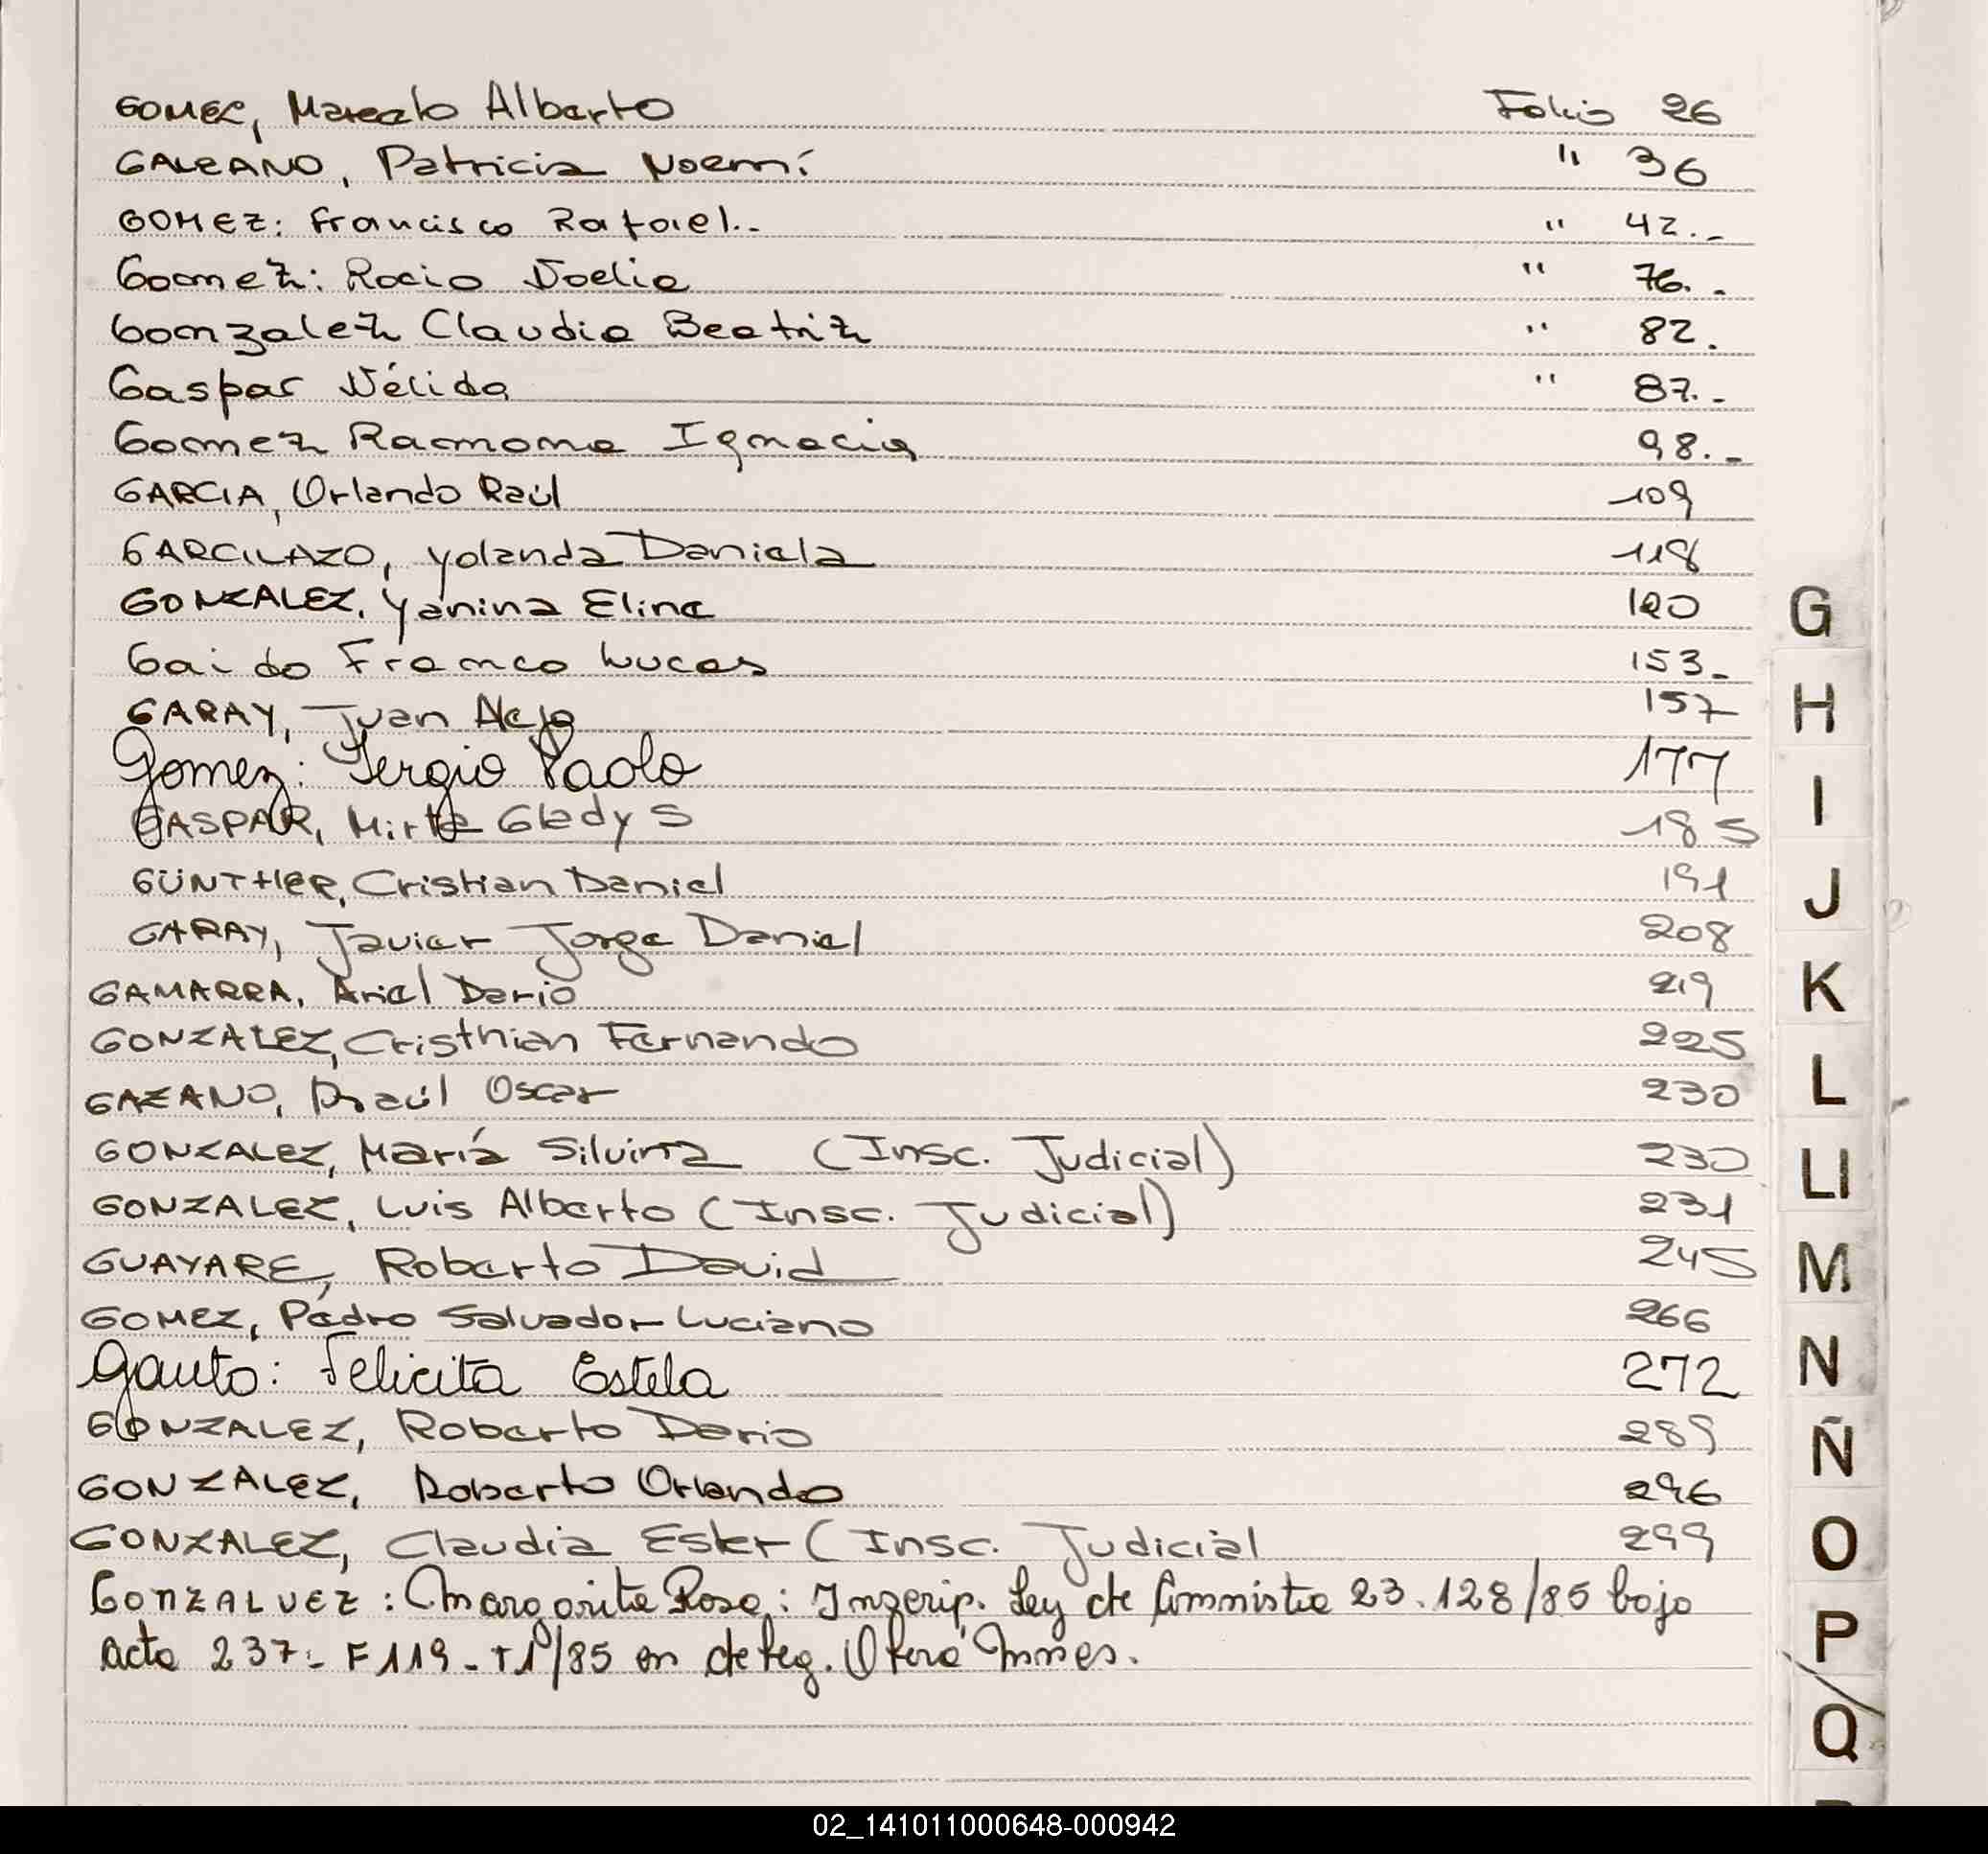 GOMEZ, Marcelo Alberto Folio 26
GALEANO, Patricia Noemí " 36
GOMEZ: Francisco Rafael.- " 42.-
Gomez: Rocio Noelia " 76.-
Gonzalez Claudia Beatriz " 82.
Gaspar Nélida " 87.-
Gomez Ramona Ignacia 98.-
GARCIA, Orlando Raúl 109
GARCILAZO, Yolanda Daniela 118
GONZALEZ, Yanina Elina 120
Gaido Franco Lucas 153-
GARAY, Juan Alejo 157
Gomez: Sergio Paolo 177
GASPAR, Mirta Gladys 185
GÜNTHER, Cristian Daniel 191
GARAY, Javier Jorge Daniel 208
GAMARRA, Ariel Dario 219
GONZALEZ, Cristhian Fernando 225
GAZANO, Raúl Oscar 230
GONZALEZ, María Silvina (Insc. Judicial) 230
GONZALEZ, Luis Alberto (Insc. Judicial) 231
GUAYARE, Roberto David 245
GOMEZ, Pedro Salvador Luciano 266
Gauto: Felicita Estela 272
GONZALEZ, Roberto Dario 289
GONZALEZ, Roberto Orlando 296
GONZALEZ, Claudia Ester (Insc. Judicial 299
GONZALVEZ: Margarita Rosa: Inscrip. Ley de Ammistia 23.128/85 bajo
acta 237- F 119- T1º/85 en deleg.
G
H
I
J
K
L
Ll
M
N
Ñ
O
P/Q
02_141011000648-000942